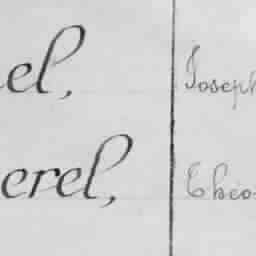 el, Joseph
erel, Théo